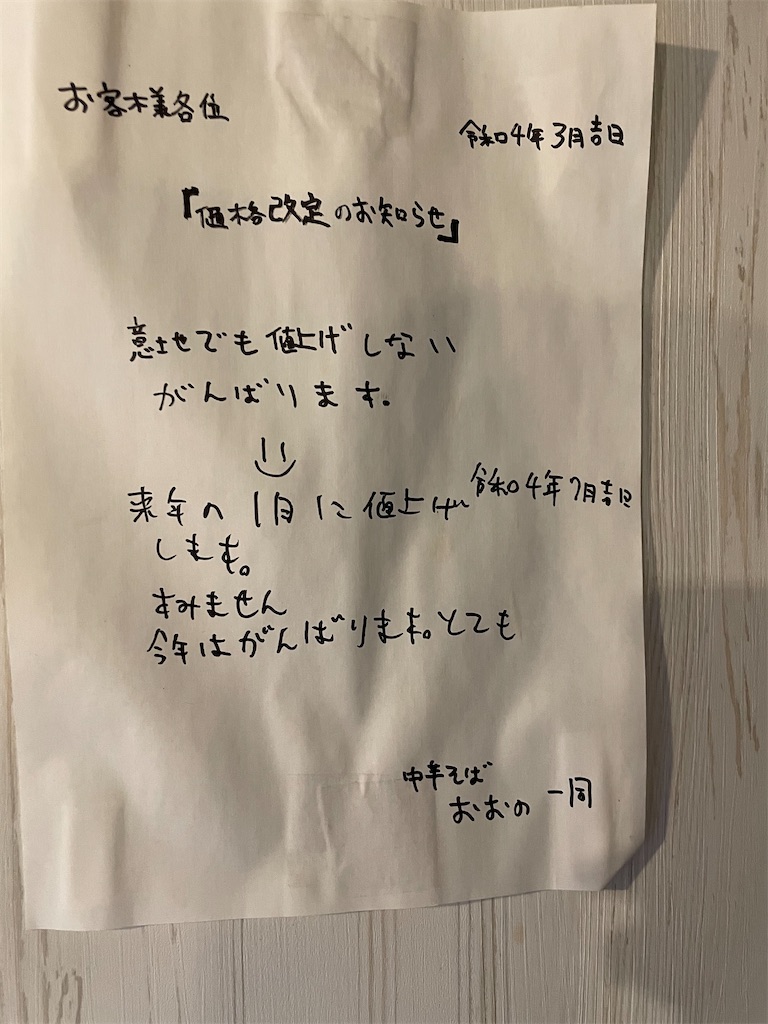 お客様各位
令和4年3月吉日
『価格改定のお知らせ』
意地でも値上げしない
がんばります。
来年の1月に値上げ 令和4年7月吉日
します。
すみません
今年はがんばります。とても
中華そば
おおの 一同